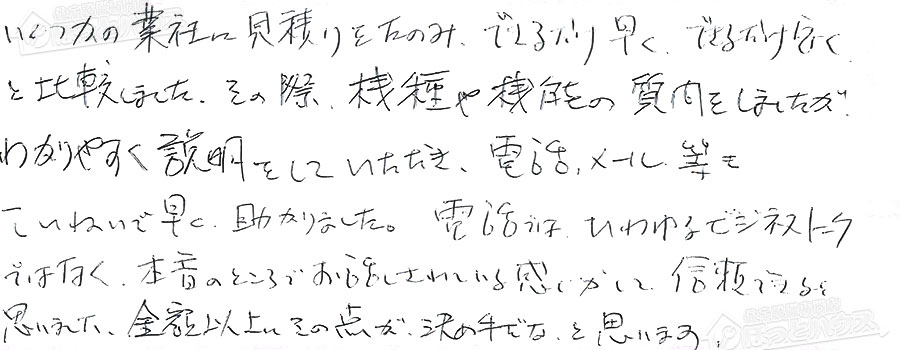 いくつかの業社に見積りをたのみ、できるだけ早く、できるだけ安く
と比較しました。その際、機種や機能の質問をしましたが、
わかりやすく説明をしていただき、電話、メール等も
ていねいで早く、助かりました。電話では、いわゆるビジネストーク
ではなく、本音のところでお話しされている感じがして、信頼できると
思いました、金額以上にその点が、決め手だな、と思います。